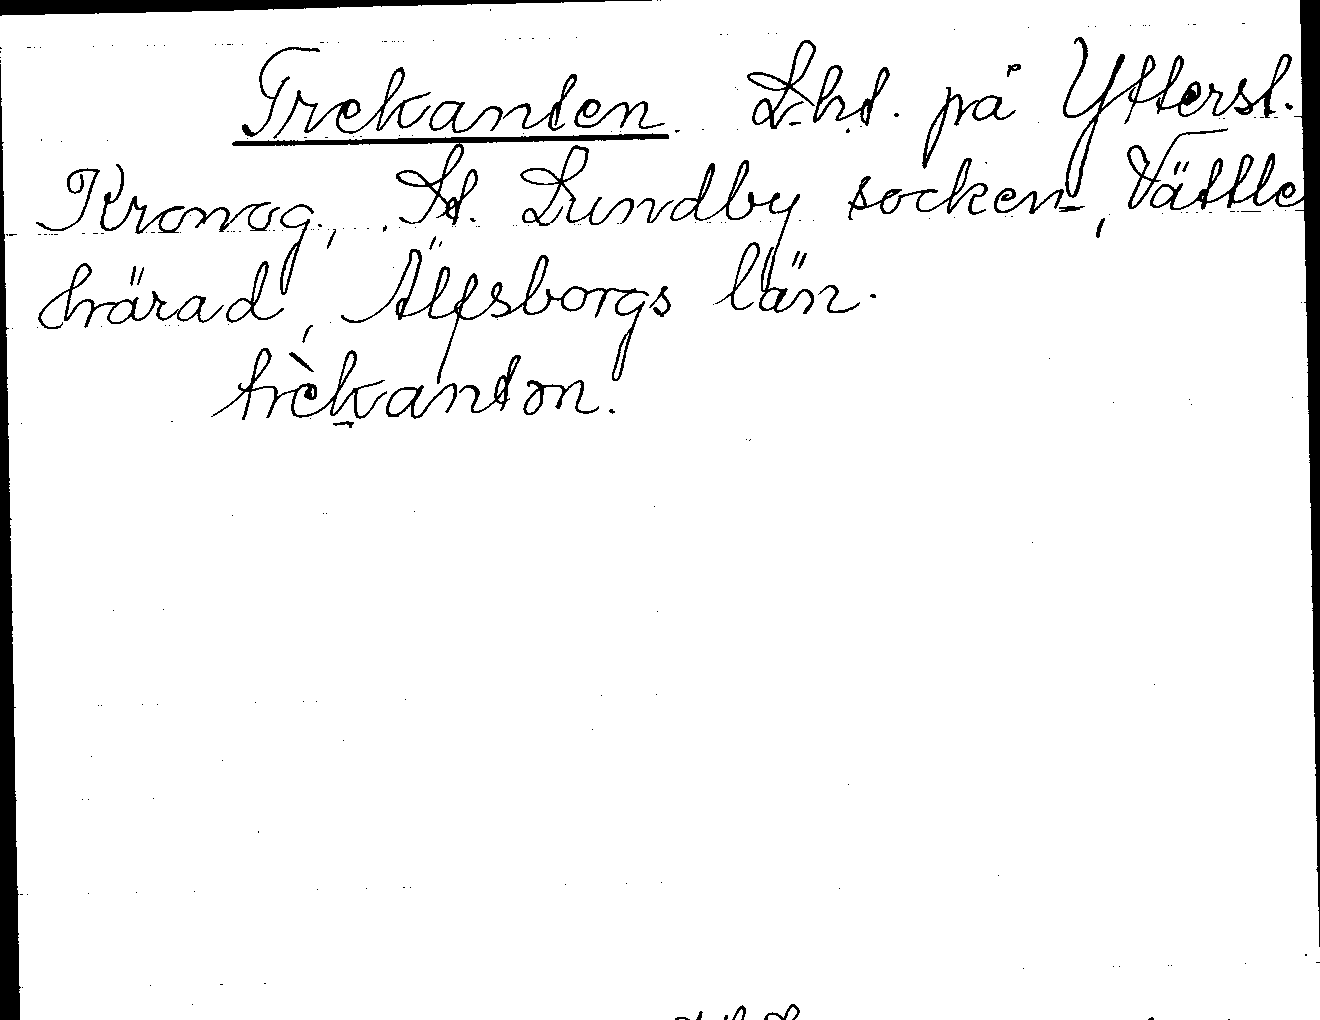 Trekanten. L.ht. på Ytterst.
Kronog., St. Lundby socken, Vättle
härad, Älfsborgs län.
trèkantən.